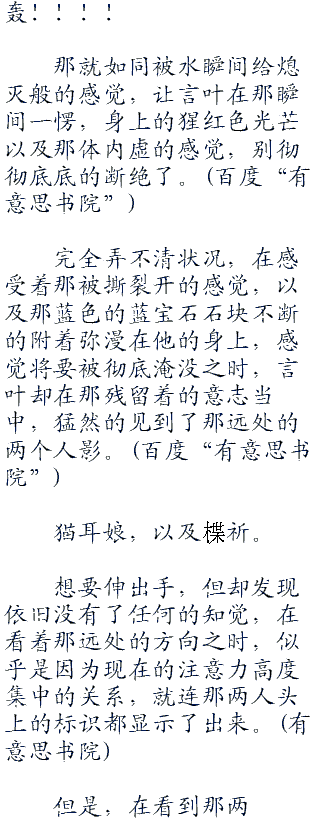 轰！！！！
那就如同被水瞬间给熄
灭般的感觉，让言叶在那瞬
间一愣，身上的猩红色光芒
以及那体内虚的感觉，别彻
彻底底的断绝了。(百度“有
意思书院”)
完全弄不清状况，在感
受着那被撕裂开的感觉，以
及那蓝色的蓝宝石石块不断
的附着弥漫在他的身上，感
觉将要被彻底淹没之时，言
叶却在那残留着的意志当
中，猛然的见到了那远处的
两个人影。(百度“有意思书
院”)
猫耳娘，以及楪祈。
想要伸出手，但却发现
依旧没有了任何的知觉，在
看着那远处的方向之时，似
乎是因为现在的注意力高度
集中的关系，就连那两人头
上的标识都显示了出来。(有
意思书院)
但是，在看到那两